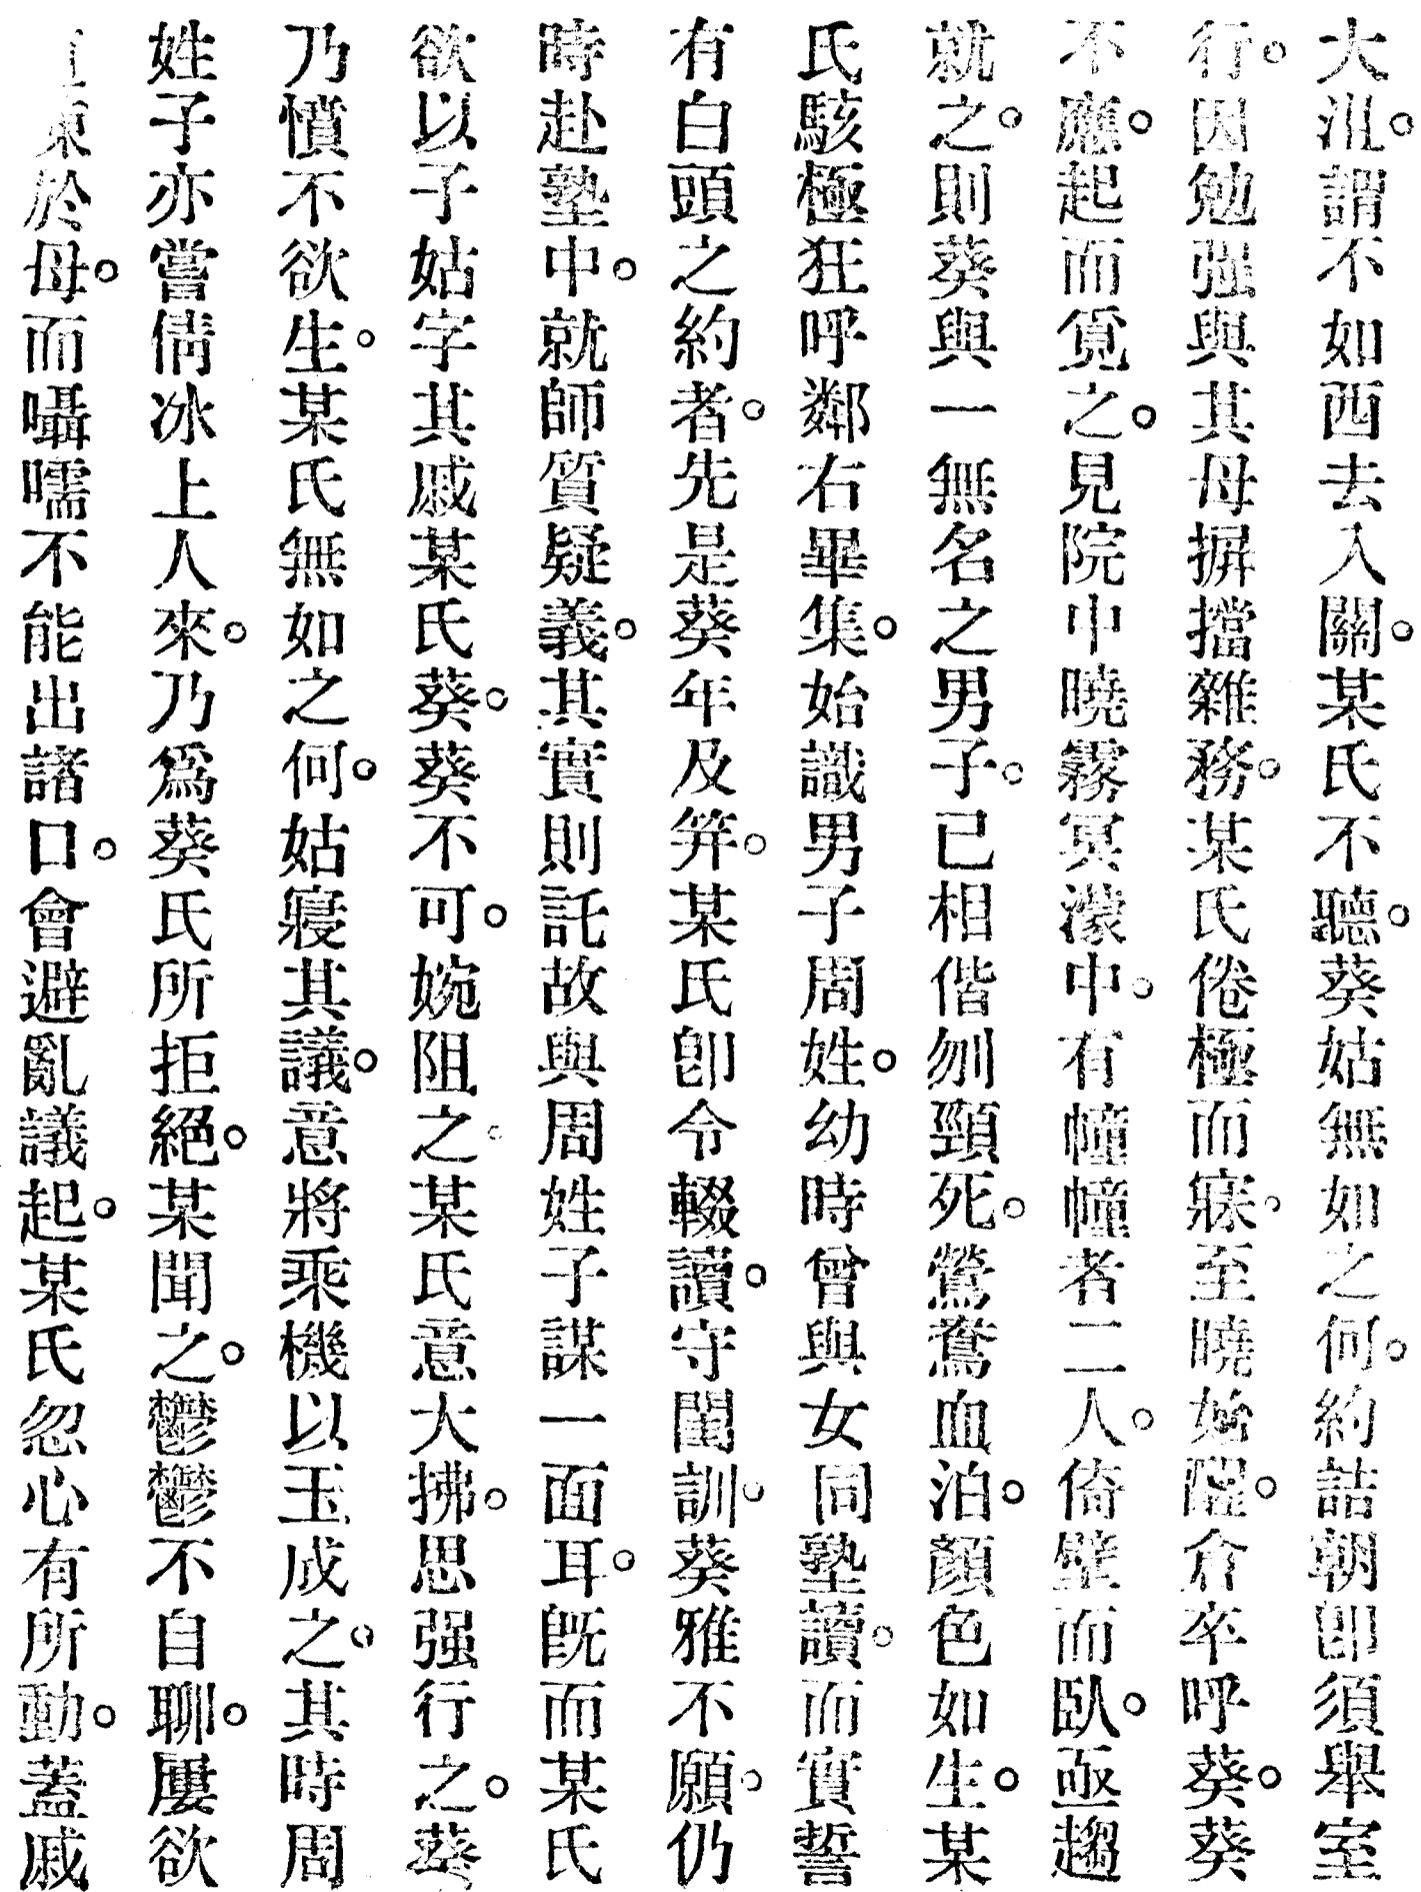 大沮。謂不如西去入關。某氏不聽。葵姑無如之何。約詰朝卽須舉室
行。因勉强與其母摒擋雜務。某氏倦極而寐。至曉始醒。倉卒呼葵。葵
不應。起而覓之。見院中曉霧冥濛中。有幢幢者二人。倚壁而臥。亟趨
就之。則葵與一無名之男子。已相偕刎頸死。鶯鴦血泊。顏色如生。某
氏駭極狂呼鄰右畢集。始識男子周姓。幼時曾與女同塾讀。而實誓
有白頭之約者。先是葵年及笄。某氏卽令輟讀。守閨訓。葵雅不願。仍
時赴塾中。就師質疑義。其實則託故與周姓子謀一面耳。旣而某氏
欲以子姑字其戚某氏葵。葵不可。婉阻之。某氏意大拂。思强行之。葵
乃憤不欲生。某氏無如之何。姑寢其議。意將乘機以玉成之。其時周
姓子亦嘗倩冰上人來。乃爲葵氏所拒絕。某聞之。鬱鬱不自聊。屢欲
東於母。而囁嚅不能出諸口。會避亂議起。某氏忽心有所動。蓋戚